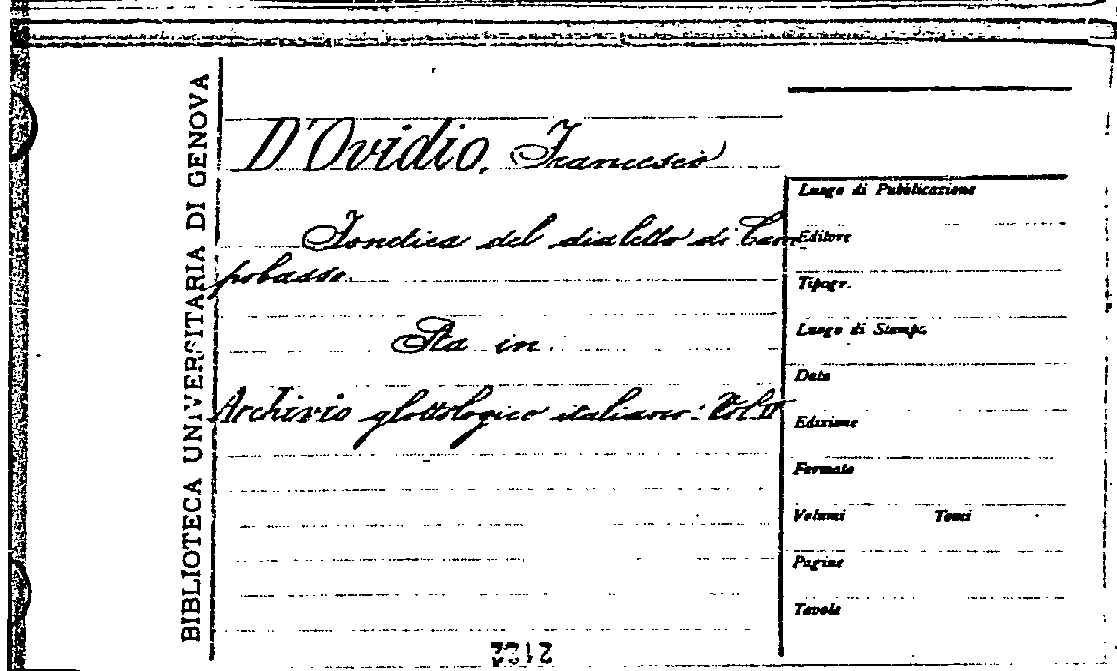 BIBLIOTECA UNIVERSITARIA DI GENOVA
D'Ovidio, Francesco
Fonetica del dialetto di Cam
pobasso.
Sta in.
Archivio glottologico italiano: Vol.
Luogo di Pubblicazione
Editore
Tipogr.
Luogo di Stampa
Data
Edizione
Formato
Volumi Tomi
Pagine
Tavole